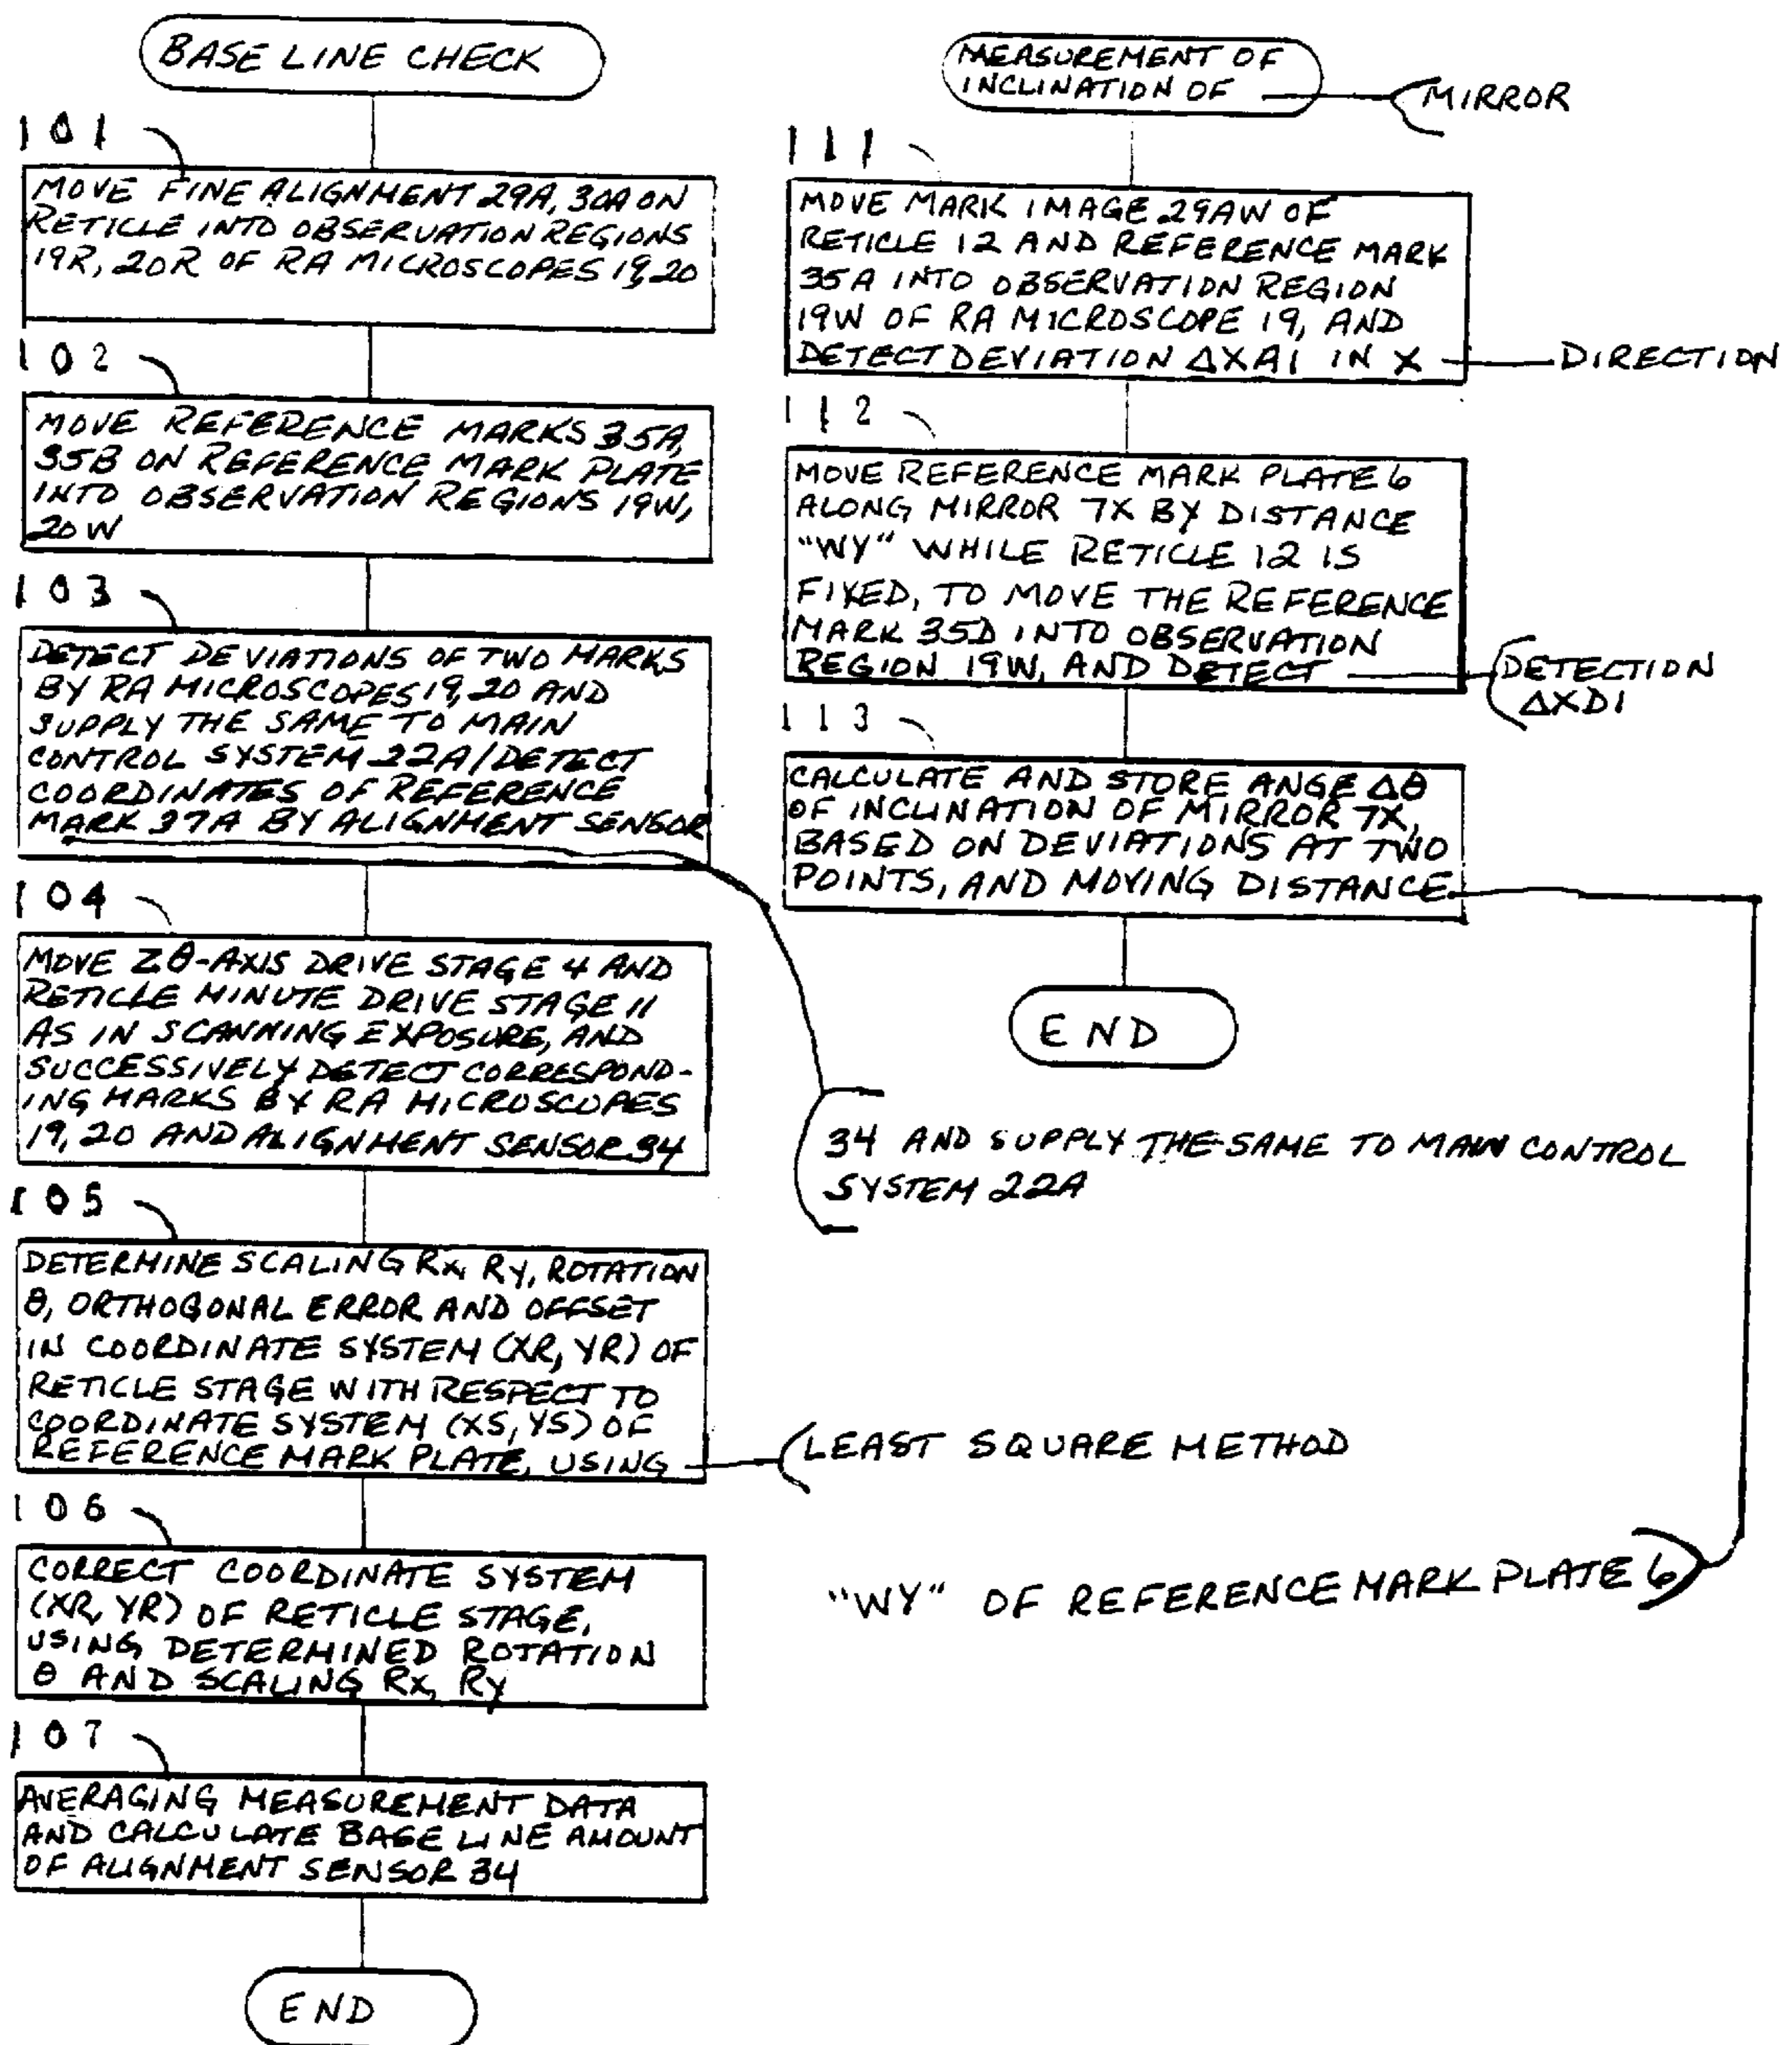 BASE LINE CHECK
101
MOVE FINE ALIGNMENT 29A, 30A ON
RETICLE INTO OBSERVATION REGIONS
19R, 20R OF RA MICROSCOPES 19, 20
102
MOVE REFERENCE MARKS 35A,
35B ON REFERENCE MARK PLATE
INTO OBSERVATION REGIONS 19W,
20W
103
DETECT DEVIATIONS OF TWO MARKS
BY RA MICROSCOPES 19, 20 AND
SUPPLY THE SAME TO MAIN
CONTROL SYSTEM 22A/DETECT
COORDINATES OF REFERENCE
MARK 37A BY ALIGNMENT SENSOR
34 AND SUPPLY THE SAME TO MAIN CONTROL
SYSTEM 22A
104
MOVE Zθ-AXIS DRIVE STAGE 4 AND
RETICLE MINUTE DRIVE STAGE 11
AS IN SCANNING EXPOSURE, AND
SUCCESSIVELY DETECT CORRESPOND-
ING MARKS BY RA MICROSCOPES
19, 20 AND ALIGNMENT SENSOR 34
105
DETERMINE SCALING Rx, Ry, ROTATION
θ, ORTHOGONAL ERROR AND OFFSET
IN COORDINATE SYSTEM (XR, YR) OF
RETICLE STAGE WITH RESPECT TO
COORDINATE SYSTEM (XS, YS) OF
REFERENCE MARK PLATE, USING
LEAST SQUARE METHOD
106
CORRECT COORDINATE SYSTEM
(XR, YR) OF RETICLE STAGE,
USING DETERMINED ROTATION
θ AND SCALING Rx, Ry
107
AVERAGING MEASUREMENT DATA
AND CALCULATE BASE LINE AMOUNT
OF ALIGNMENT SENSOR 34
END
MEASUREMENT OF
INCLINATION OF
MIRROR
111
MOVE MARK IMAGE 29AW OF
RETICLE 12 AND REFERENCE MARK
35A INTO OBSERVATION REGION
19W OF RA MICROSCOPE 19, AND
DETECT DEVIATION ΔXA1 IN X
DIRECTION
112
MOVE REFERENCE MARK PLATE 6
ALONG MIRROR 7X BY DISTANCE
"WY" WHILE RETICLE 12 IS
FIXED, TO MOVE THE REFERENCE
MARK 35D INTO OBSERVATION
REGION 19W, AND DETECT
DETECTION
ΔXD1
113
CALCULATE AND STORE ANGE Δθ
OF INCLINATION OF MIRROR 7X,
BASED ON DEVIATIONS AT TWO
POINTS, AND MOVING DISTANCE
"WY" OF REFERENCE MARK PLATE 6
END